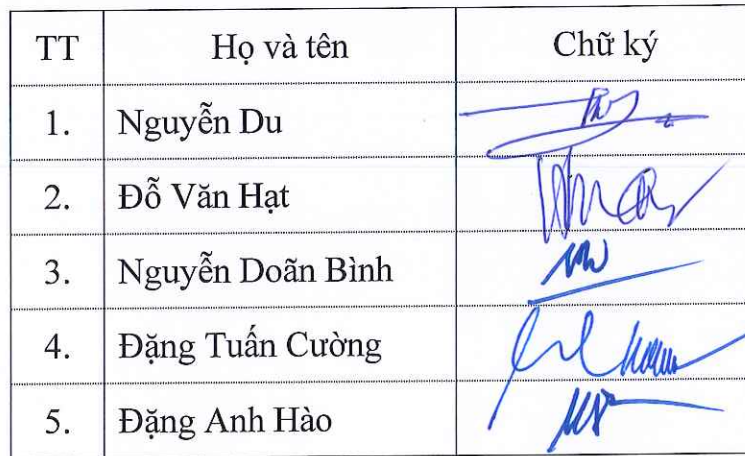 TT Họ và tên Chữ ký
1. Nguyễn Du
2. Đỗ Văn Hạt
3. Nguyễn Doãn Bình
4. Đặng Tuấn Cường
5. Đặng Anh Hào